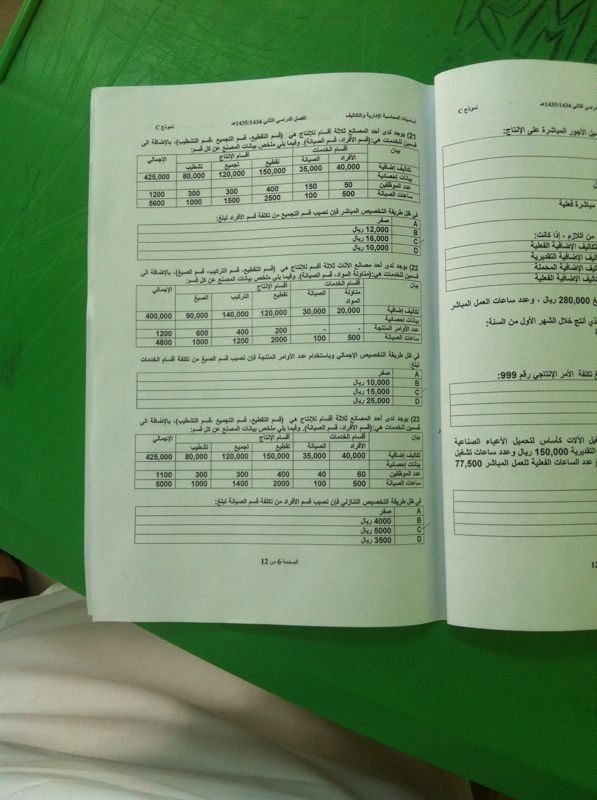 أساسيات المحاسبة الإدارية والتكاليف الفصل الدراسي الثاني 1435/1434هـ نموذج C
21) يوجد لدى أحد المصانع ثلاثة أقسام للإنتاج هي (قسم التقطيع، قسم التجميع ،قسم التشطيب)، بالإضافة الى
قسمين للخدمات هي:(قسم الأفراد، قسم الصيانة). وفيما يلي ملخص بيانات المصنع عن كل قسم:
بيان أقسام الخدمات أقسام الإنتاج الإجمالي
الأفراد الصيانة تقطيع تجميع تشطيب
تكاليف إضافية 40,000 35,000 150,000 120,000 80,000 425,000
بيانات إحصائية
عدد الموظفين 50 150 400 300 300 1200
ساعات الصيانة 500 100 2500 1500 1000 5600
في ظل طريقة التخصيص المباشر فإن نصيب قسم التجميع من تكلفة قسم الأفراد تبلغ:
A صفر
B 12,000 ريال
C 16,000 ريال
D 10,000 ريال
22) يوجد لدى أحد مصانع الأثاث ثلاثة أقسام للإنتاج هي (قسم التقطيع، قسم التركيب، قسم الصبغ)، بالإضافة الى
قسمين للخدمات هي:(مناولة المواد، قسم الصيانة). وفيما يلي ملخص بيانات المصنع عن كل قسم:
بيان أقسام الخدمات أقسام الإنتاج الإجمالي
مناولة المواد الصيانة تقطيع التركيب الصبغ
تكاليف إضافية 20,000 30,000 120,000 140,000 90,000 400,000
بيانات إحصائية
عدد الأوامر المنتجة - - 200 400 600 1200
ساعات الصيانة 500 100 2000 1200 1000 4800
في ظل طريقة التخصيص الإجمالي وباستخدام عدد الأوامر المنتجة فإن نصيب قسم الصبغ من تكلفة أقسام الخدمات
تبلغ:
A صفر
B 10,000 ريال
C 15,000 ريال
D 25,000 ريال
23) يوجد لدى أحد المصانع ثلاثة أقسام للإنتاج هي (قسم التقطيع، قسم التجميع ،قسم التشطيب)، بالإضافة الى
قسمين للخدمات هي:(قسم الأفراد، قسم الصيانة). وفيما يلي ملخص بيانات المصنع عن كل قسم:
بيان أقسام الخدمات أقسام الإنتاج الإجمالي
الأفراد الصيانة تقطيع تجميع تشطيب
تكاليف إضافية 40,000 35,000 150,000 120,000 80,000 425,000
بيانات إحصائية
عدد الموظفين 60 40 400 300 300 1100
ساعات الصيانة 500 100 2000 1400 1000 5000
في ظل طريقة التخصيص التنازلي فإن نصيب قسم الأفراد من تكلفة قسم الصيانة تبلغ:
A صفر
B 4000 ريال
C 5000 ريال
D 3500 ريال
الصفحة 6 من 12
الثاني 1435/1434هـ نموذج C
الأجور المباشرة على الإنتاج:
مباشرة فعلية
من اللازم ، إذا كانت:
التكاليف الإضافية الفعلية
التكاليف الإضافية التقديرية
التكاليف الإضافية المحملة
التكاليف الإضافية الفعلية
280,000 ريال ، وعدد ساعات العمل المباشر
خلال الشهر الأول من السنة:
تكلفة الأمر الإنتاجي رقم 999:
الآلات كأساس لتحميل الأعباء الصناعية
التقديرية 150,000 ريال وعدد ساعات تشغيل
عدد الساعات الفعلية للعمل المباشر 77,500